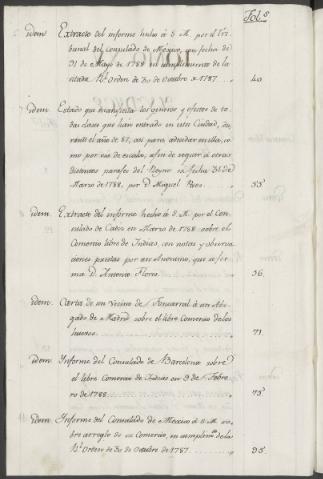 Fol.s
idem Extracto del informe hecho á S. M. por el Tri
bunal del consulado de Mexico, su fecha de
31 de Mayo de 1788 en cumplimiento de la
citada Rl. Orden de 30 de Octubre de 1787 40
idem. Estado que manifiesta los generos y efectos de to
das clases que han entrado en esta Ciudad, du
rante el año de 87, asi para consumir en ella, co
mo por via de escala, á fin de seguir á otros
distintos parajes del Reyno su fecha 31 de
Marzo de 1788, por D. Miguel Paez 55
idem. Extracto del informe hecho á S. M. por el Con
sulado de Cadiz en Marzo de 1788 sobre el
Comercio libre de Indias, con notas y observa
ciones puestas por un Anonimo, que se fir
ma D. Antonio Flores 56.
idem. Carta de un Vecino de Fuencarral á un Abo
gado de Madrid sobre el libre Comercio de los
huevos 71.
idem. Informe del Consulado de Barcelona sobre
el libre Comercio de Indias en 9 de Febre
ro de 1788 75
idem Informe del Consulado de Mexico á S. M. so
bre arreglo de su Comercio, en cumplimto. de la
Rl. Orden de 30 de Octubre de 1787 95.